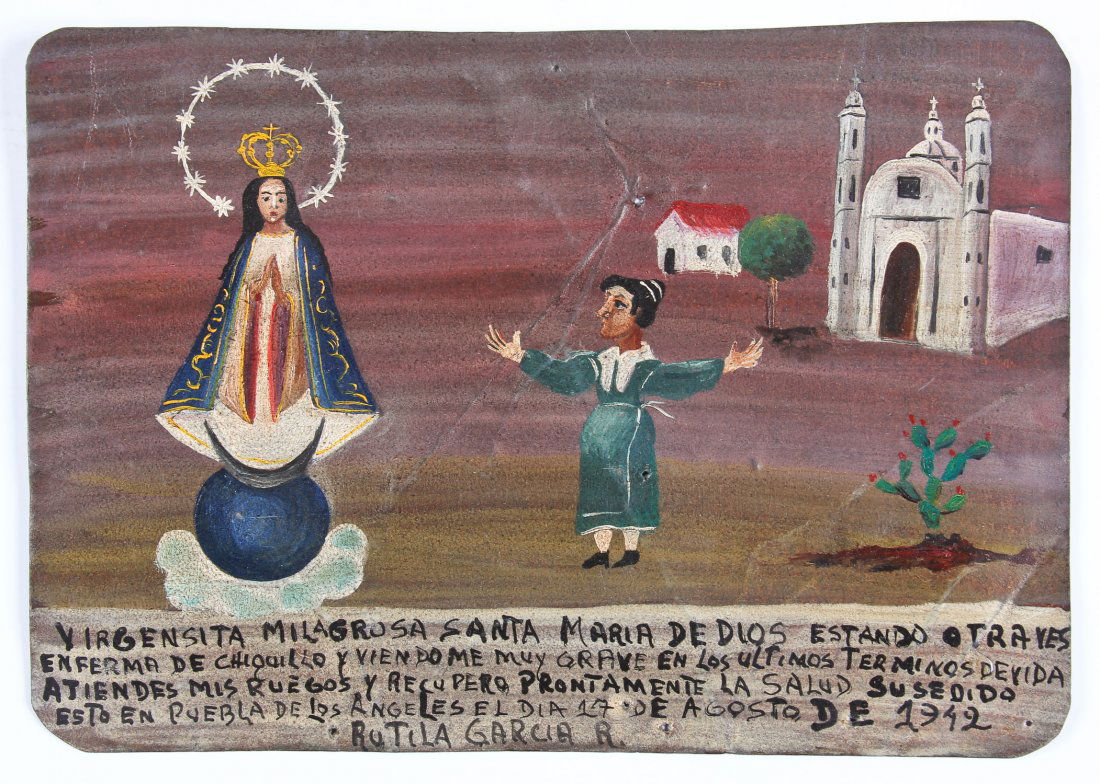 VIRGENSITA MILAGROSA SANTA MARIA DE DIOS ESTANDO OTRA VES
ENFERMA DE CHIQUILLO Y VIENDOME MUY GRAVE EN LOS ULTIMOS TERMINOS DE VIDA
ATIENDES MIS RUEGOS, Y RECUPERO PRONTAMENTE LA SALUD SUSEDIDO
ESTO EN PUEBLA DE LOS ANGELES EL DIA 17 DE AGOSTO DE 1942.
RUTILA GARCIA R.